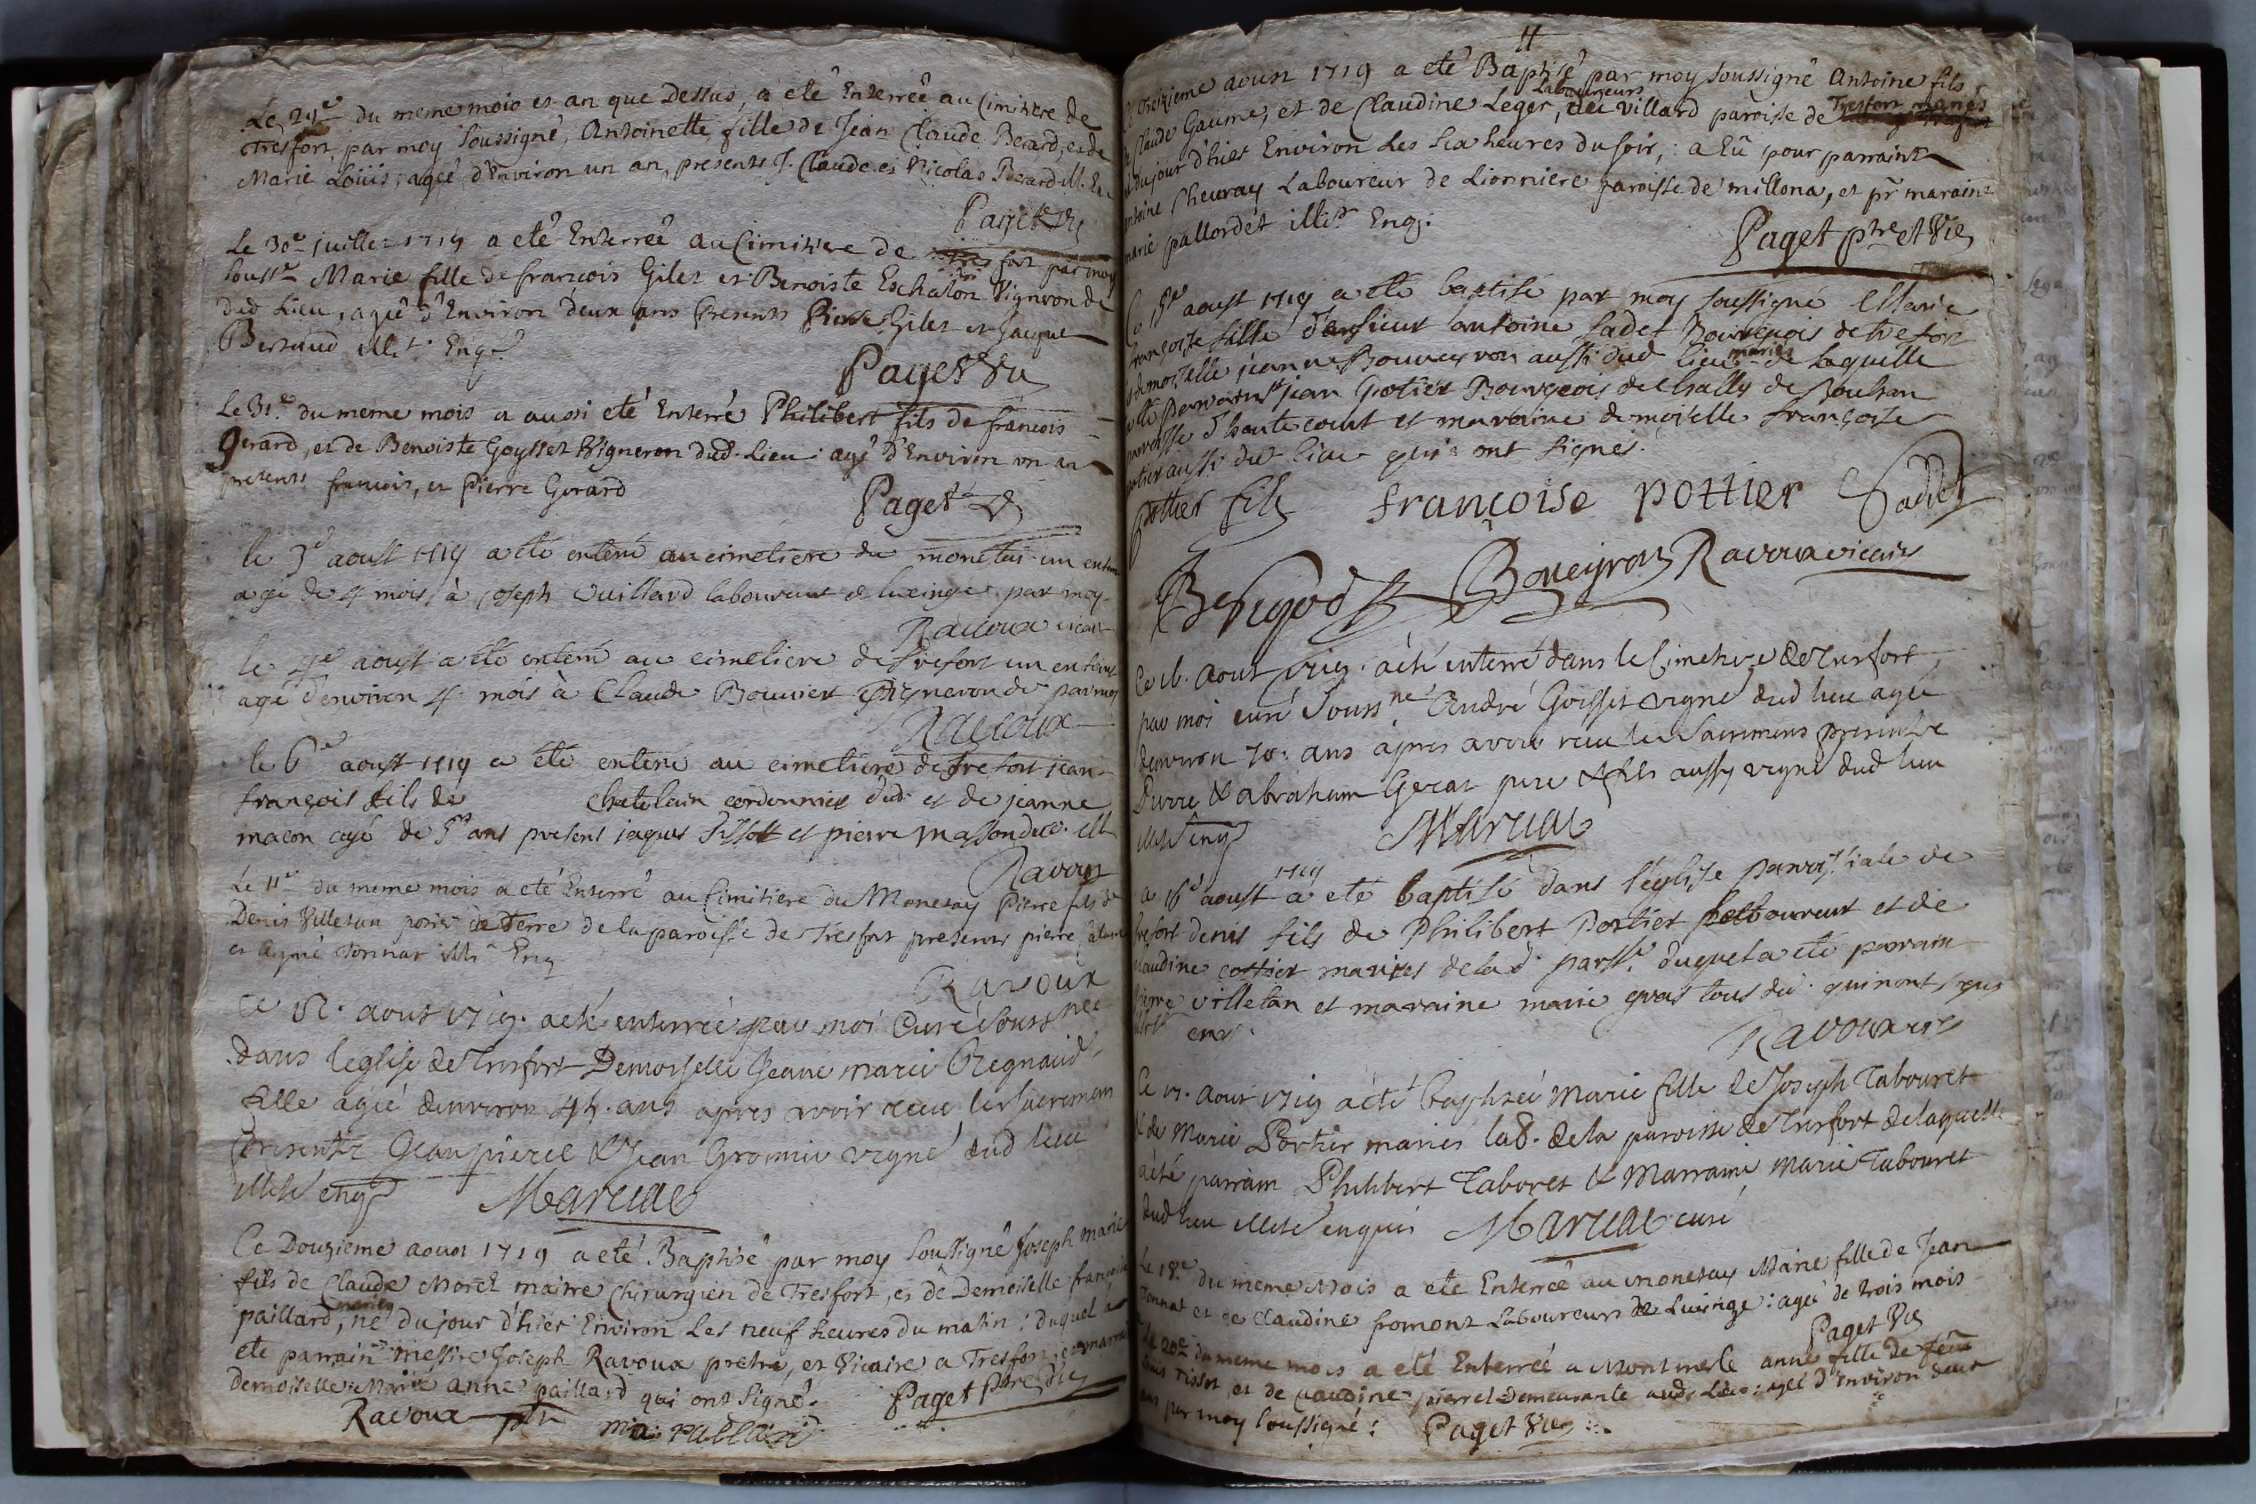 Le 29e du meme mois et an que Dessus, a eté Enterreê au Cimitere de
Tresfort, par moy Soussigné, Antoinette, fille de Jean Claude Berard, et de
Marie Louis, agée d'Environ un an, presents J. Claude et Nicolas Berard ill. En
Paget
Le 30e juillet 1719 a eté Enterreê au Cimitiere de Tresfort par moy
Souss.e Marie fille de francois Gilet et Benoiste Eschalon Vigneron de
Dud Lieu, ageê d'Environ deux ans presents Pierre Gilet et Jacque
Bernaud illit. Enq.
Paget Vic
Le 31.e du meme mois a aussi eté Enterré Philibert fils de francois
Gerard, et de Benoiste Goysset Vigneron dud. Lieu: agé d'Environ un an
presents francois, et Pierre Gerard
Paget
le 3e aoust 1719 a eté enterré au cimetiere du monetai un enfant
agé de 4 mois à joseph Vuillard laboureur de lucinge par moy
Ravoux vicaire
le 4e aoust a eté enterré au cimetiere de Trefort un enfant
agé d'environ 4 mois à Claude Bouvier Vigneron du par moy
Ravoux
le 6e aoust 1719 a été enterré au cimetiere de trefort jean
françois fils de chatelain cordonnier dud. et de jeanne
macon agé de 5 ans present jaques Tissot et pierre masson dud. ill
Ravoux
Le 11e du meme mois a eté Enterré au Cimitiere du Monetay Pierre fils de
Denis Villetan potier de Terre de la paroisse de Tresfort presents pierre
et Aymé Tonnar illi. Enq
Ravoux
Ce 12. aout 1719. a eté enterreé par moi Curé Soussné
dans leglise de Tresfort Demoiselle Jeane marie Regnaud
fille ageé denviron 44. ans apres avoir receu les sacremens
presents Jean pierre & Jean Gromier vigné dud lieu
illité enq
Marciat
Ce Douzieme aoust 1719 a eté Baptisê par moy Soussigné Joseph marie
fils de Claude Morel maitre Chirurgien de Tresfort, et de Demoiselle françoise
paillard, mariés né du jour d'hier Environ Les neuf heures du matin: duquel a
eté parrain messire Joseph Ravoux pretre, et Vicaire a Tresfort et marraine
Demoiselle Marie anne paillard qui ont Signé.
Ravoux ptre
ma: PALLARD
Paget Ptre et Vic
Le treizieme aoust 1719 a eté Baptisé par moy soussigné Antoine fils
de Claude Gaume, et de Claudine Leger, Laboureurs du villard paroisse de Tresfort mariés
né du jour d'hier Environ Les Six heures du soir, a Eû pour parrain
Antoine Cheuray Laboureur de Lionniere paroisse de millona, et pr maraine
marie pallordet illit. Enq.
Paget ptre et Vic
Ce 15e aoust 1719 a eté baptisé par moy soussigné Marie
françoise fille de sieur antoine Sadet Bourgeois de trefort
et demoiselle jeanne Bouveyron aussi dud lieu mariés de laquelle
a eté parrain sr jean Potier Bourgeois de
paroisse d'hautecourt et maraine demoiselle françoise
potier aussi dud lieu qui ont signés.
Pottier fils
françoise POTTIER
Sadet
Bergod
Boveyron
Ravoux vicaire
Ce 16. Aout 1719. a eté enterré dans le Cimetiere de Tresfort
par moi curé Soussné André Goisset vigné dud lieu agé
denviron 70. ans apres avoir receu les Sacremens presents
Pierre & abraham Gerar pere & fils aussy vigné dud lieu
illité enq
Marciat
Ce 16e aoust 1719 a eté baptisé dans l'église parroissiale de
trefort denis fils de Philibert Portier laboureur et de
claudine cottier mariés de lad. parsse. duquel a eté parrain
pierre villetan et maraine marie gras tous dud. qui n'ont signé
illit enq.
Ravoux vic
Ce 17. Aout 1719 a eté baptiseé Marie fille de Joseph Tabouret
& de Marie Portier mariés lab. de la paroisse de Tresfort de laquelle
a eté parrain Philibert Tabouret & Marraine Marie Tabouret
dud lieu illité enquis
Marciat curé
Le 18.e du meme Mois a ete Enterreê au Monetay Marie fille de Jean
Tonnat et de Claudine fromont Laboureurs de Lucinge: ageê de trois mois
Paget Vic
Le 20e du meme mois a eté Enterreé a Montmerle anne fille de feu
Tissot, et de Claudine pierrel Demeurante aud. Lieu: ageê d'Environ deux
ans par moy soussigné:
Paget Vic